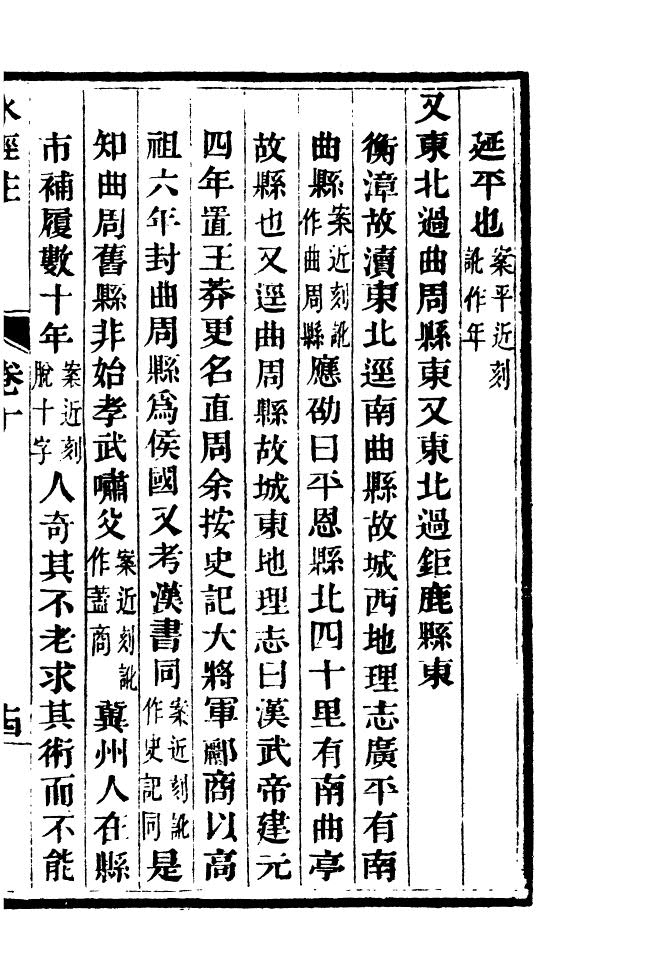 延平也案平近刻訛作年
又東北過曲周縣東又東北過鉅鹿縣東
衡漳故瀆東北逕南曲縣故城西地理志廣平有南
曲縣案近刻訛作曲周縣應劭曰平恩縣北四十里有南曲亭
故縣也又逕曲周縣故城東地理志曰漢武帝建元
四年置王莽更名直周余按史記大將軍酈商以高
祖六年封曲周縣爲侯國又考漢書同案近刻訛作史記同是
知曲周舊縣非始孝武嘯父案近刻訛作蓋商冀州人在縣
市補履數十年案近刻脫十字人奇其不老求其術而不能
水經注 卷十 古